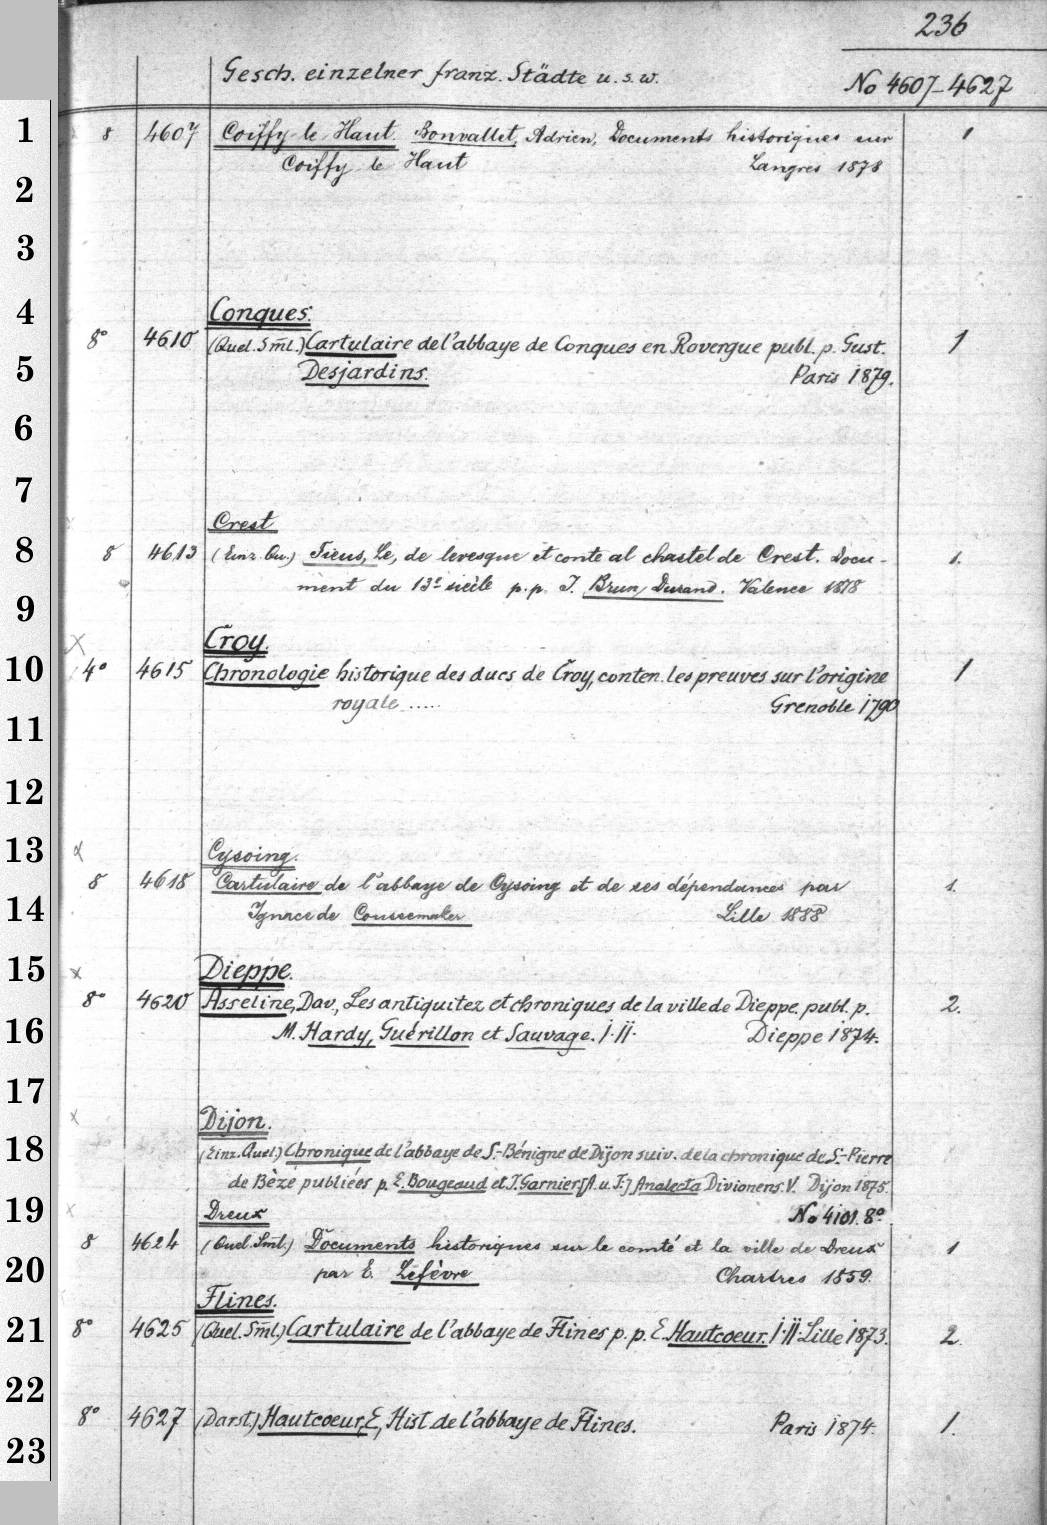 236
Gesch. einzelner franz. Städte u. s. w.
No 4607-4627
1
8 4607 Coiffy le Haut. Bonvallet, Adrien, Documents historiques sur 1
Coiffy le Haut Langres 1878
2
3
4
Conques.
8° 4610 (Quel. Sml.) Cartulaire de l'abbaye de Conques en Rovergue publ. p. Gust. 1
5
Desjardins. Paris 1879.
6
7
Crest
8
8 4613 (Einz. Qu.) Tieus, Le, de levesque et conte al chastel de Crest. Docu- 1.
ment du 13e siècle p. p. J. Brun Durand. Valence 1878
9
Croy.
10
4° 4615 Chronologie historique des ducs de Croy, conten. les preuves sur l'origine 1
royale ..... Grenoble 1790
11
12
13
Cysoing.
8 4618 Cartulaire de l'abbaye de Cysoing et de ses dépendances par 1.
14
Ignace de Coussemaker Lille 1888
15
Dieppe.
8° 4620 Asseline, Dav., Les antiquitez et chroniques de la ville de Dieppe. publ. p. 2.
16
M. Hardy, Guérillon et Sauvage. I. II. Dieppe 1874.
17
Dijon.
18
(Einz. Quel.) Chronique de l'abbaye de S.-Bénigne de Dijon suiv. de la chronique de S.-Pierre
de Bèze publiées p. E. Bougeaud et J. Garnier [A. u. T.] Analecta Divionens. V. Dijon 1875.
19
Dreux No 4101. 8°
8 4624 (Quel. Sml.) Documents historiques sur le comté et la ville de Dreux 1
20
par E. Lefèvre Chartres 1859.
Flines.
21
8° 4625 (Quel. Sml.) Cartulaire de l'abbaye de Flines p. p. E. Hautcoeur. I. II. Lille 1873. 2.
22
8° 4627 (Darst.) Hautcoeur, E., Hist. de l'abbaye de Flines. Paris 1874. 1.
23